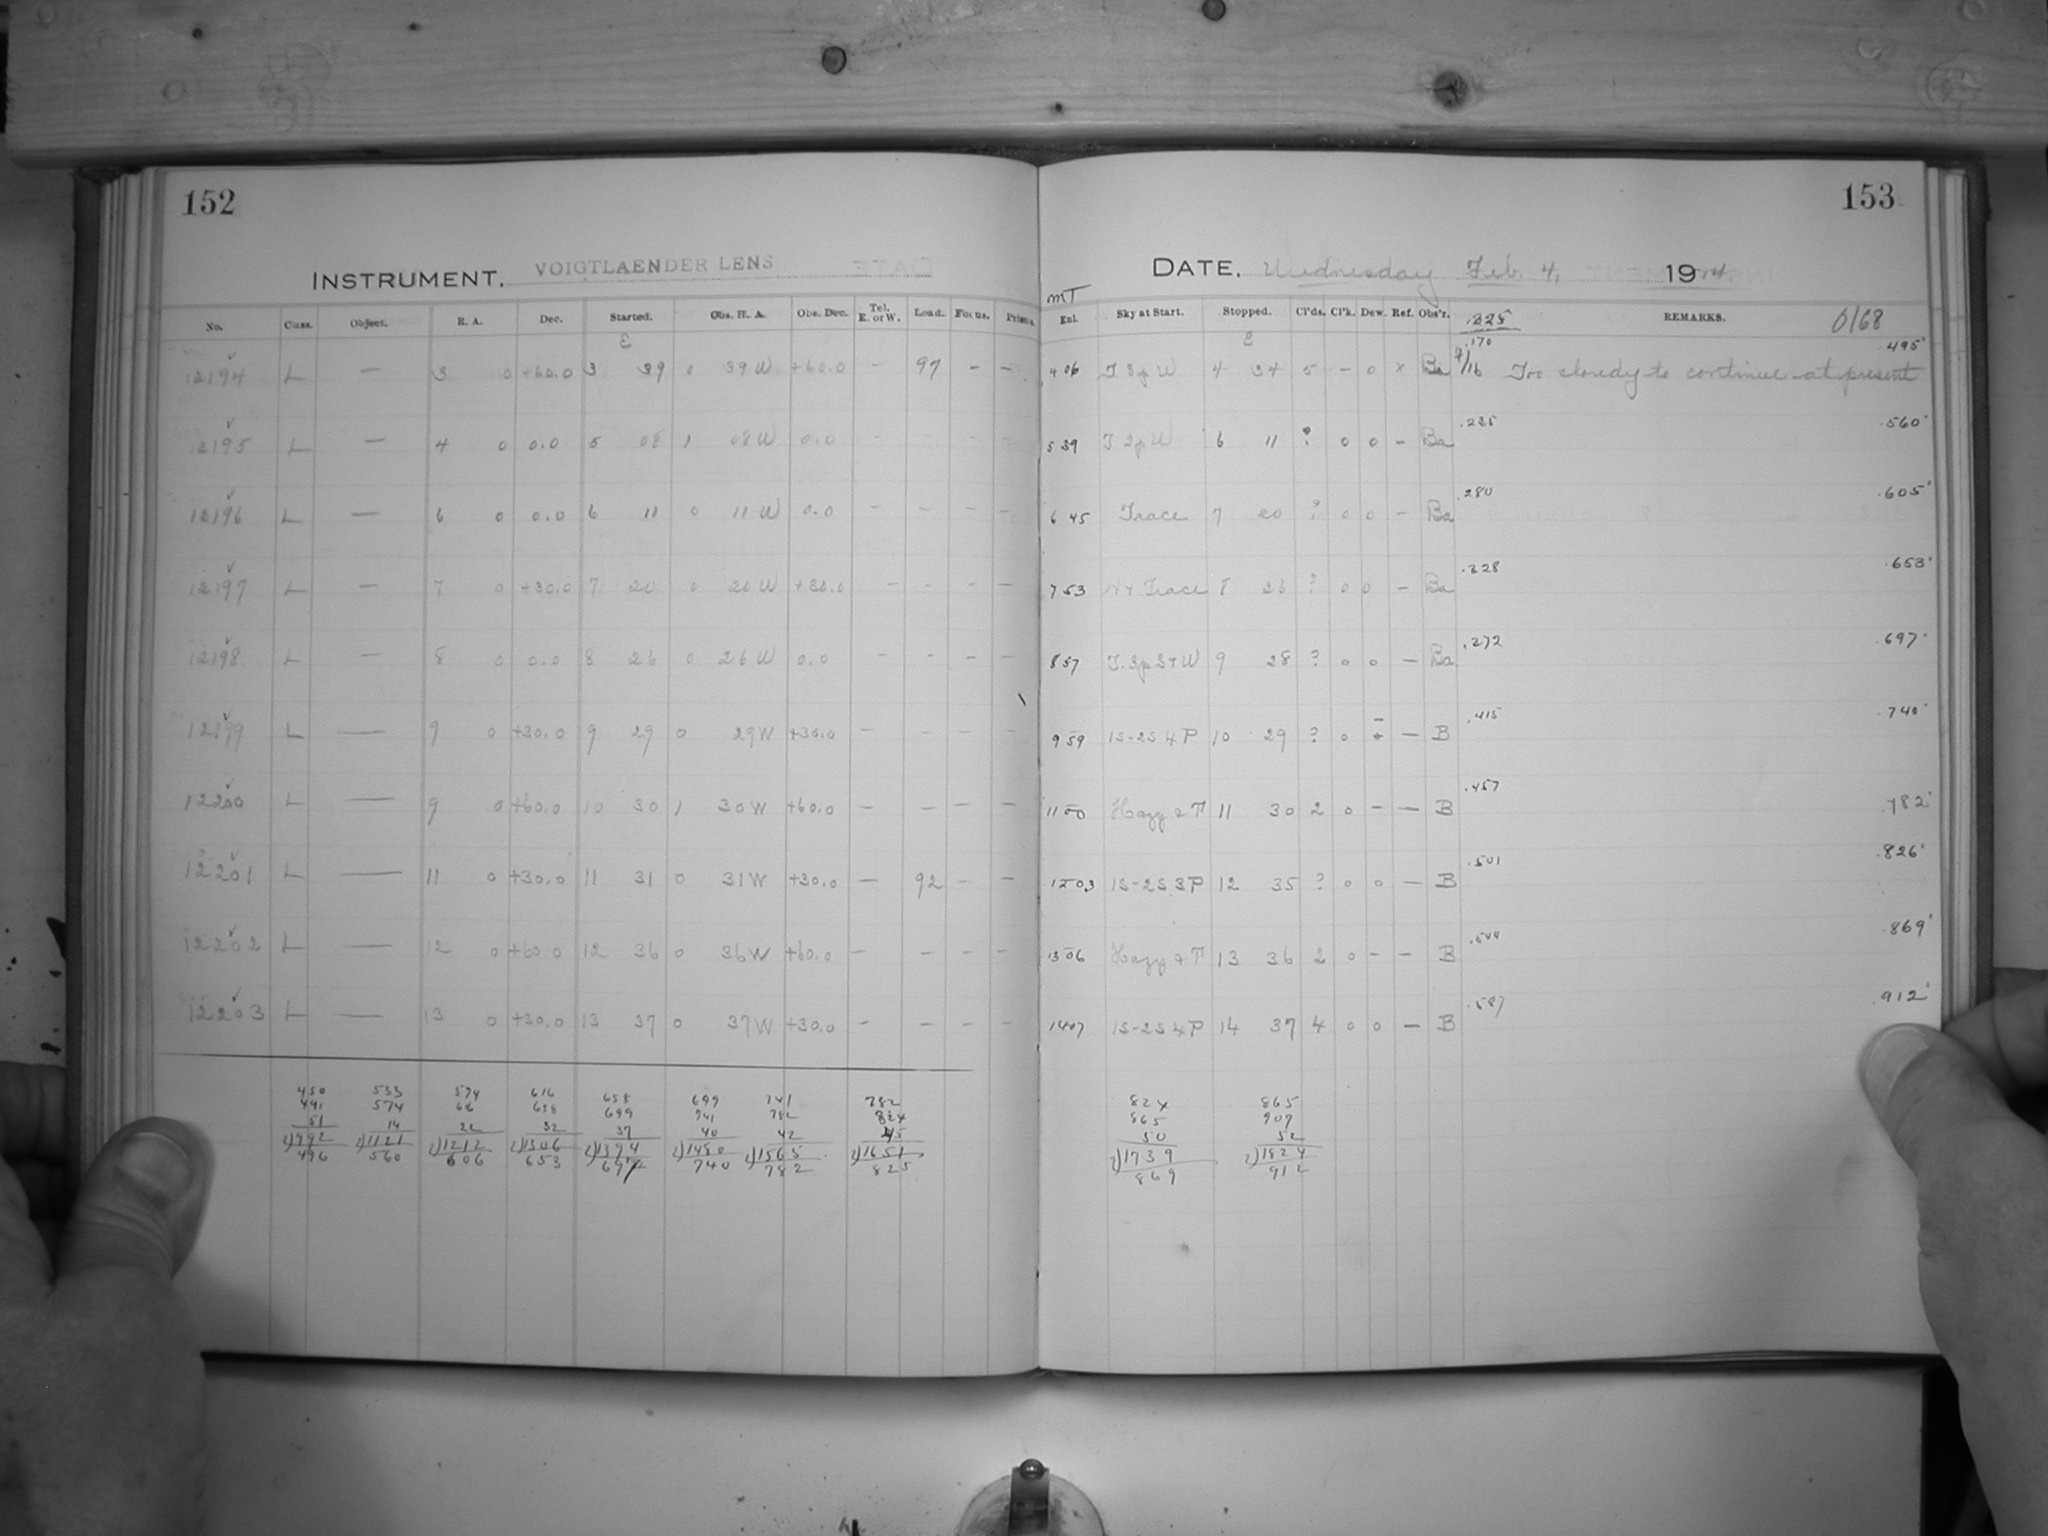 152
153
INSTRUMENT. VOIGTLAENDER LENS
DATE. Wednesday Feb. 4, 1914.
No. Class. Object. R. A. Dec. Started. Obs. H. A. Obs. Dec. Tel. E. or W. Load. Focus. Prisms.
mT
Enl. Sky at Start. Stopped. Cl'ds. Cl'k. Dew. Ref. Obs'r. .325 REMARKS. 0168
E E .170 .495
12194 L — 3 0 +60.0 3 39 0 39 W +60.0 — 97 - - 4 06 T 3p W 4 34 5 - 0 x Ba 7/16 Too cloudy to continue at present
12195 L — 4 0 0.0 5 08 1 08 W 0.0 - - - - 5 39 T 2p W 6 11 ? 0 0 - Ba .235 .560
12196 L — 6 0 0.0 6 11 0 11 W 0.0 - - - - 6 45 Trace 7 20 ? 0 0 - Ba .280 .605
12197 L — 7 0 +30.0 7 20 0 20 W +30.0 - - - - 7 53 Trace 8 26 ? 0 0 - Ba .328 .653
12198 L — 8 0 0.0 8 26 0 26 W 0.0 - - - - 8 57 T. 3p S+W 9 28 ? 0 0 — Ba .372 .697
12199 L — 9 0 +30.0 9 29 0 29 W +30.0 - - - - 9 59 1S-2S 4P 10 29 ? 0 — B .415 .740
12200 L — 9 0 +60.0 10 30 1 30 W +60.0 - - - - 11 00 Hazy & T 11 30 2 0 - — B .457 .782
12201 L — 11 0 +30.0 11 31 0 31 W +30.0 — 92 - - 12 03 1S-2S 3P 12 35 ? 0 0 — B .501 .826
12202 L — 12 0 +60.0 12 36 0 36 W +60.0 - - - - 13 06 Hazy & T 13 36 2 0 - - B .544 .869
12203 L — 13 0 +30.0 13 37 0 37 W +30.0 - - - - 14 07 1S-2S 4P 14 37 4 0 0 — B .587 .912
450 533 574 616 658 699 741 782 824 865
491 574 616 658 699 741 782 824 865 907
51 14 22 32 37 40 42 45 50 52
2)992 2)1121 2)1212 2)1306 2)1394 2)1480 2)1565 2)1651 2)1739 2)1824
496 560 606 653 697 740 782 825 869 912